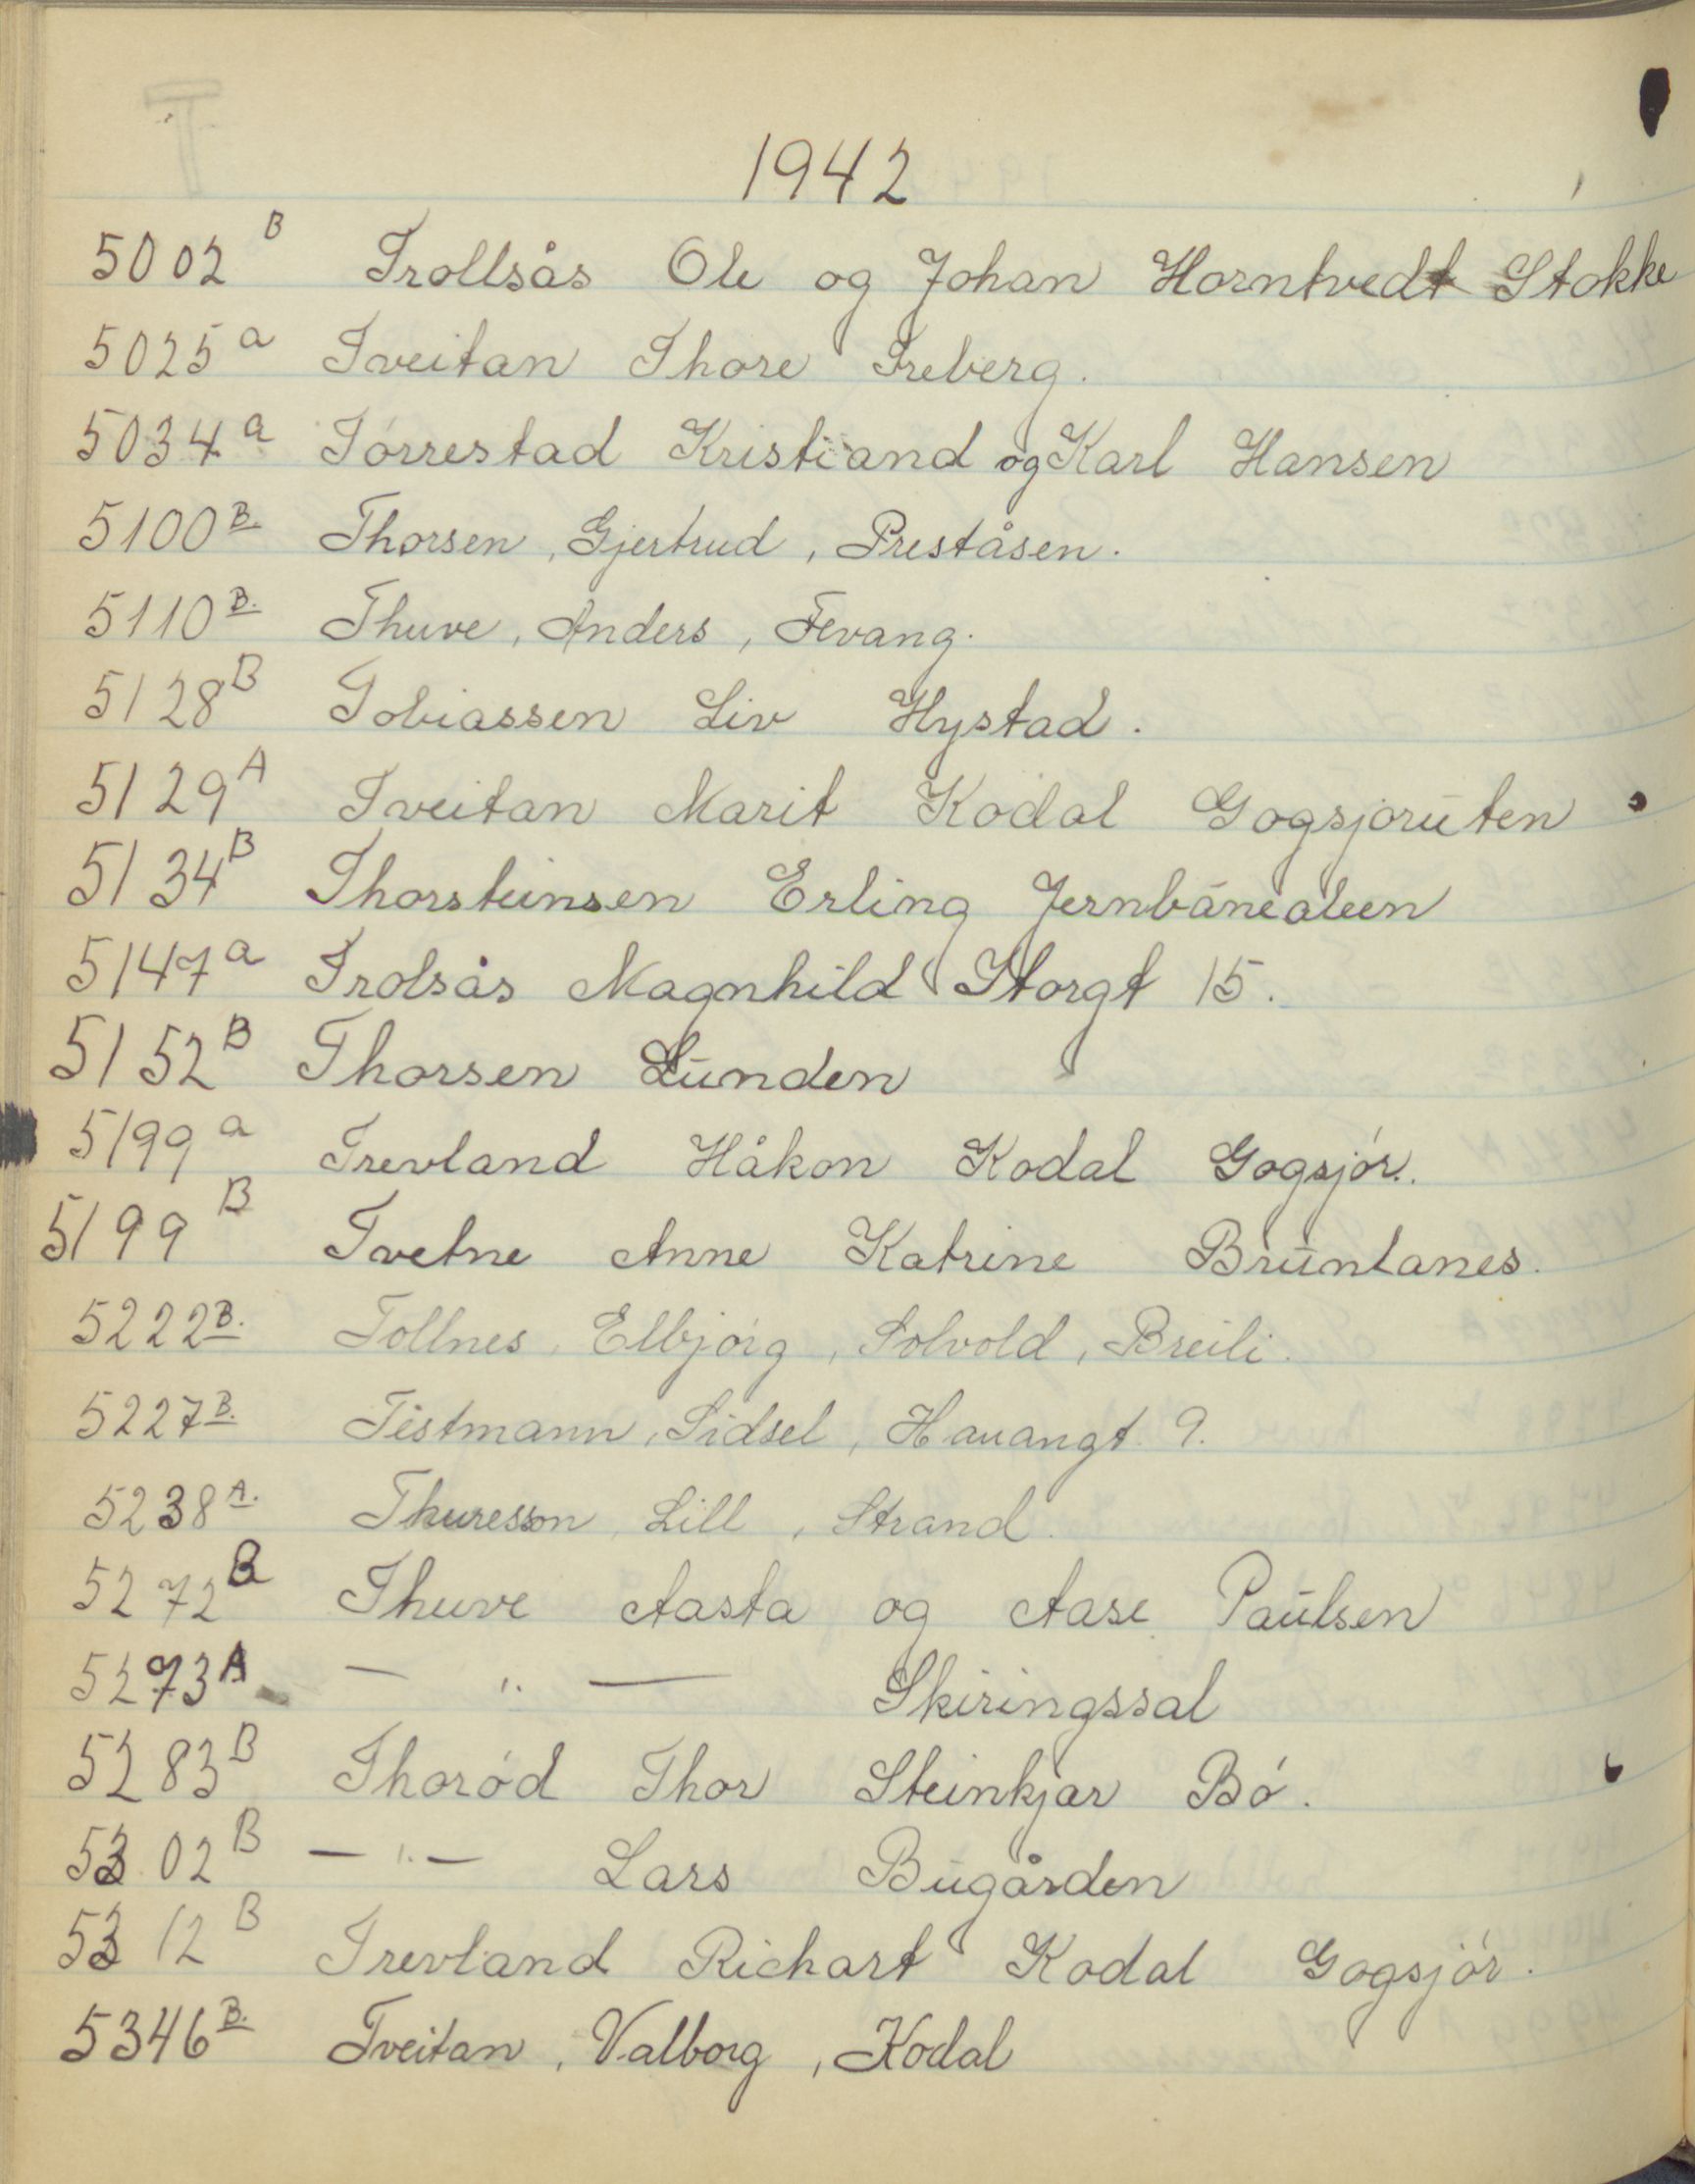 1942
5002 B Trollsås Ole og Johan Horntvedt Stokke
5025 a Tveitan Thore Freberg.
5034 a Tórrestad Kristiand og Karl Hansen
5100 B. Thorsen, Gjertrud, Preståsen.
5110 B. Thuve, Anders, Fevang.
5128 B Tobiassen Liv Hystad.
5129 A Tveitan Marit Kodal Gogsjorūten
5134 B Thorsteinsen Erling Jernbanealeen
5147 a Trolsås Magnhild Storgt 15.
5152 B Thorsen Lūnden
5199 a Trevland Håkon Kodal Gogsjór.
5199 B Tvetne Anne Katrine Brūnlanes.
5222 B. Tollnes, Elbjórg, Solvold, Breili.
5227 B. Tistmann, Sidsel, Hauangt. 9.
5238 A. Thuresson, Lill, Strand.
5272 B Thuve Aasta og Aase Paūlsen
5273 A — " — Skiringssal
5283 B Thoród Thor Steinkjar Bó.
5302 B — " — Lars Būgården
5312 B Trevland Richart Kodal Gogsjór.
5346 B. Tveitan, Valborg, Kodal